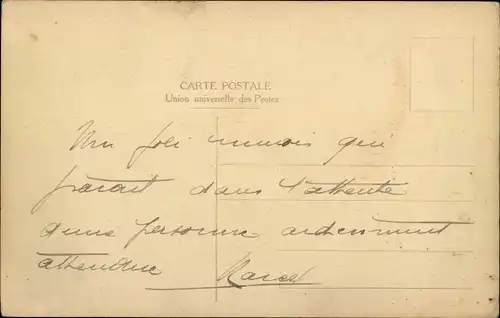 CARTE POSTALE
Union universelle des Postes
Un joli minois qui
parait dans l'attente
d'une personne ardemment
attendue Marcel